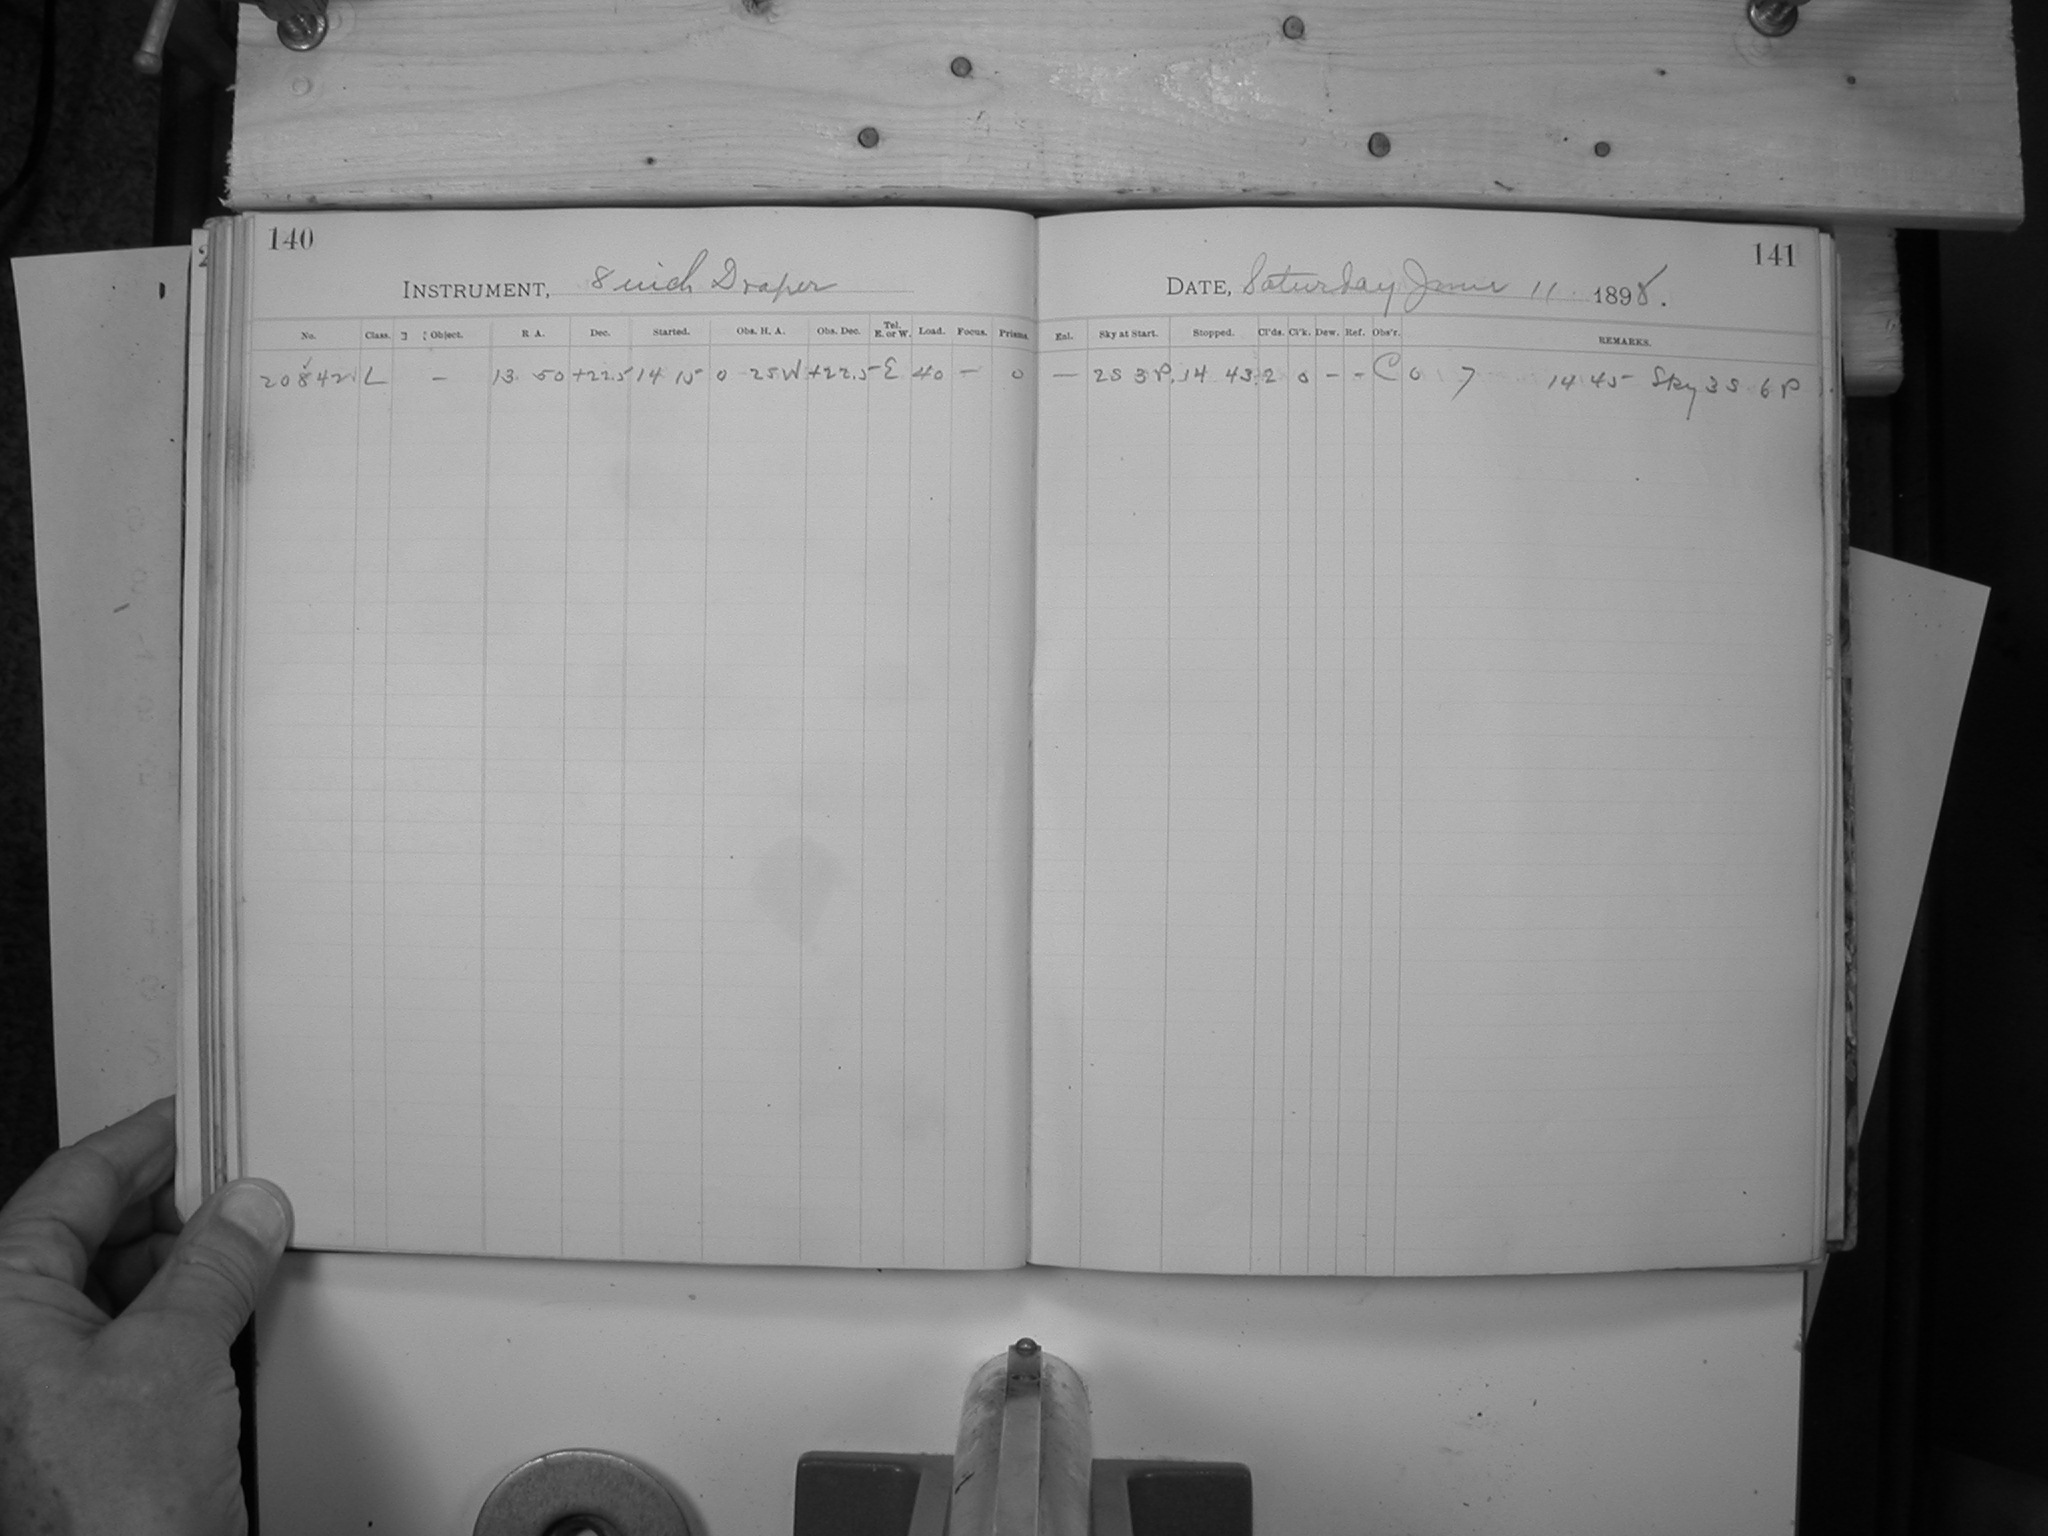 140
INSTRUMENT, 8 inch Draper
No. Class. Object. R A. Dec. Started. Obs. H. A. Obs. Dec. Tel. E. or W. Load. Focus. Prisms.
20842 L – 13 50 +22.5 14 15 0 25W +22.5 E 40 – 0
141
DATE, Saturday June 11 1898.
Enl. Sky at Start. Stopped. Cl'ds. Cl'k. Dew. Ref. Obs'r. REMARKS.
— 2S 3P. 14 43 2 0 – – C 0 7 14 45 Sky 3S 6P